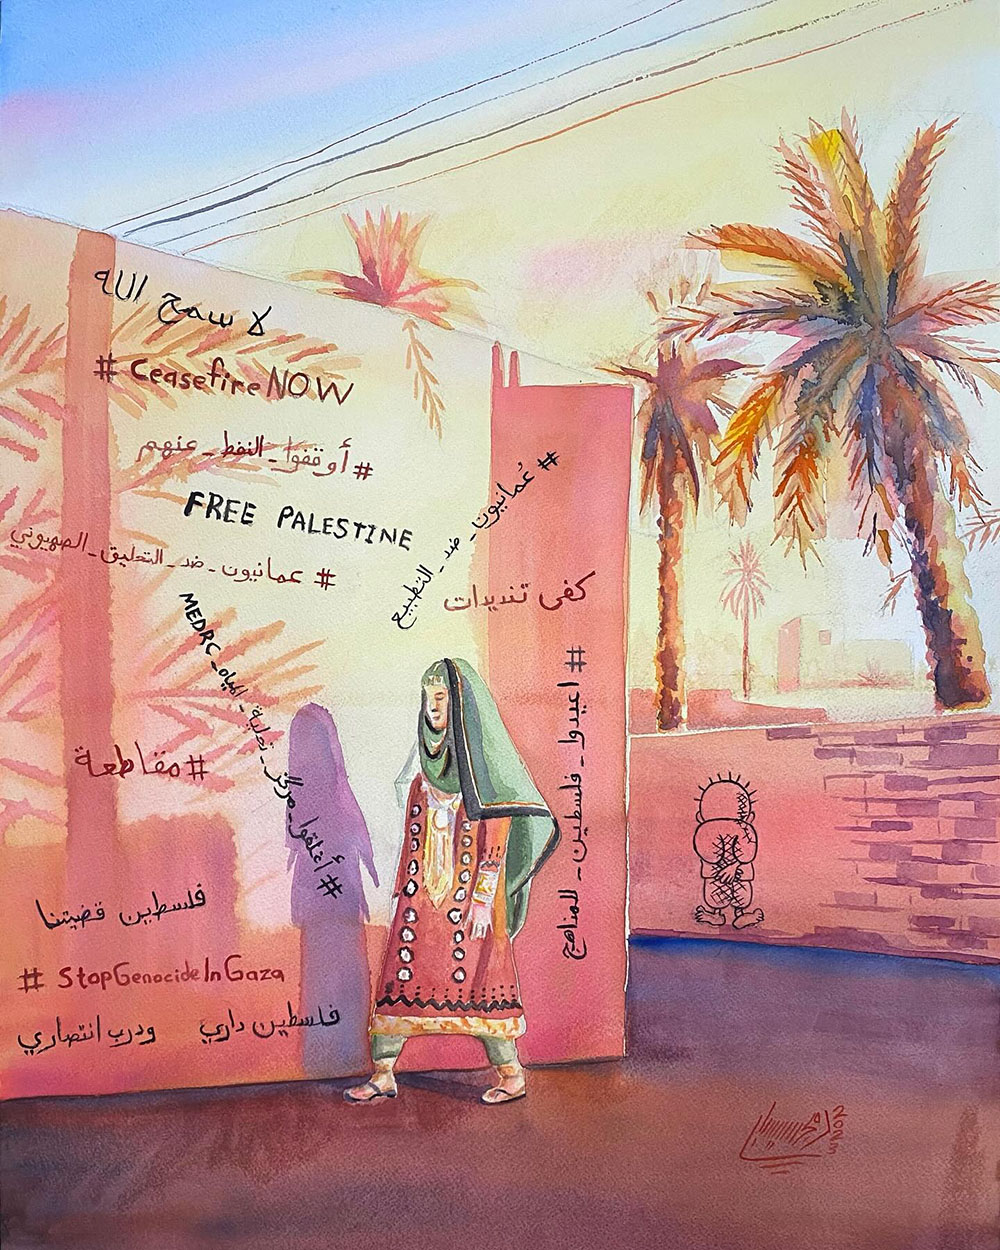 لا سمح الله
#CeasefireNOW
#أوقفوا_النفط_عنهم
FREE PALESTINE
#عمانيون_ضد_التحليق_الصهيوني
#عُمانيون_ضد_التطبيع
كفى تنديدات
#أغلقوا_مركز_تحلية_المياه_MEDRC
#اعيدوا_فلسطين_للمناهج
#مقاطعة
فلسطين قضيتنا
#StopGenocideInGaza
فلسطين داري ودرب انتصاري
2023